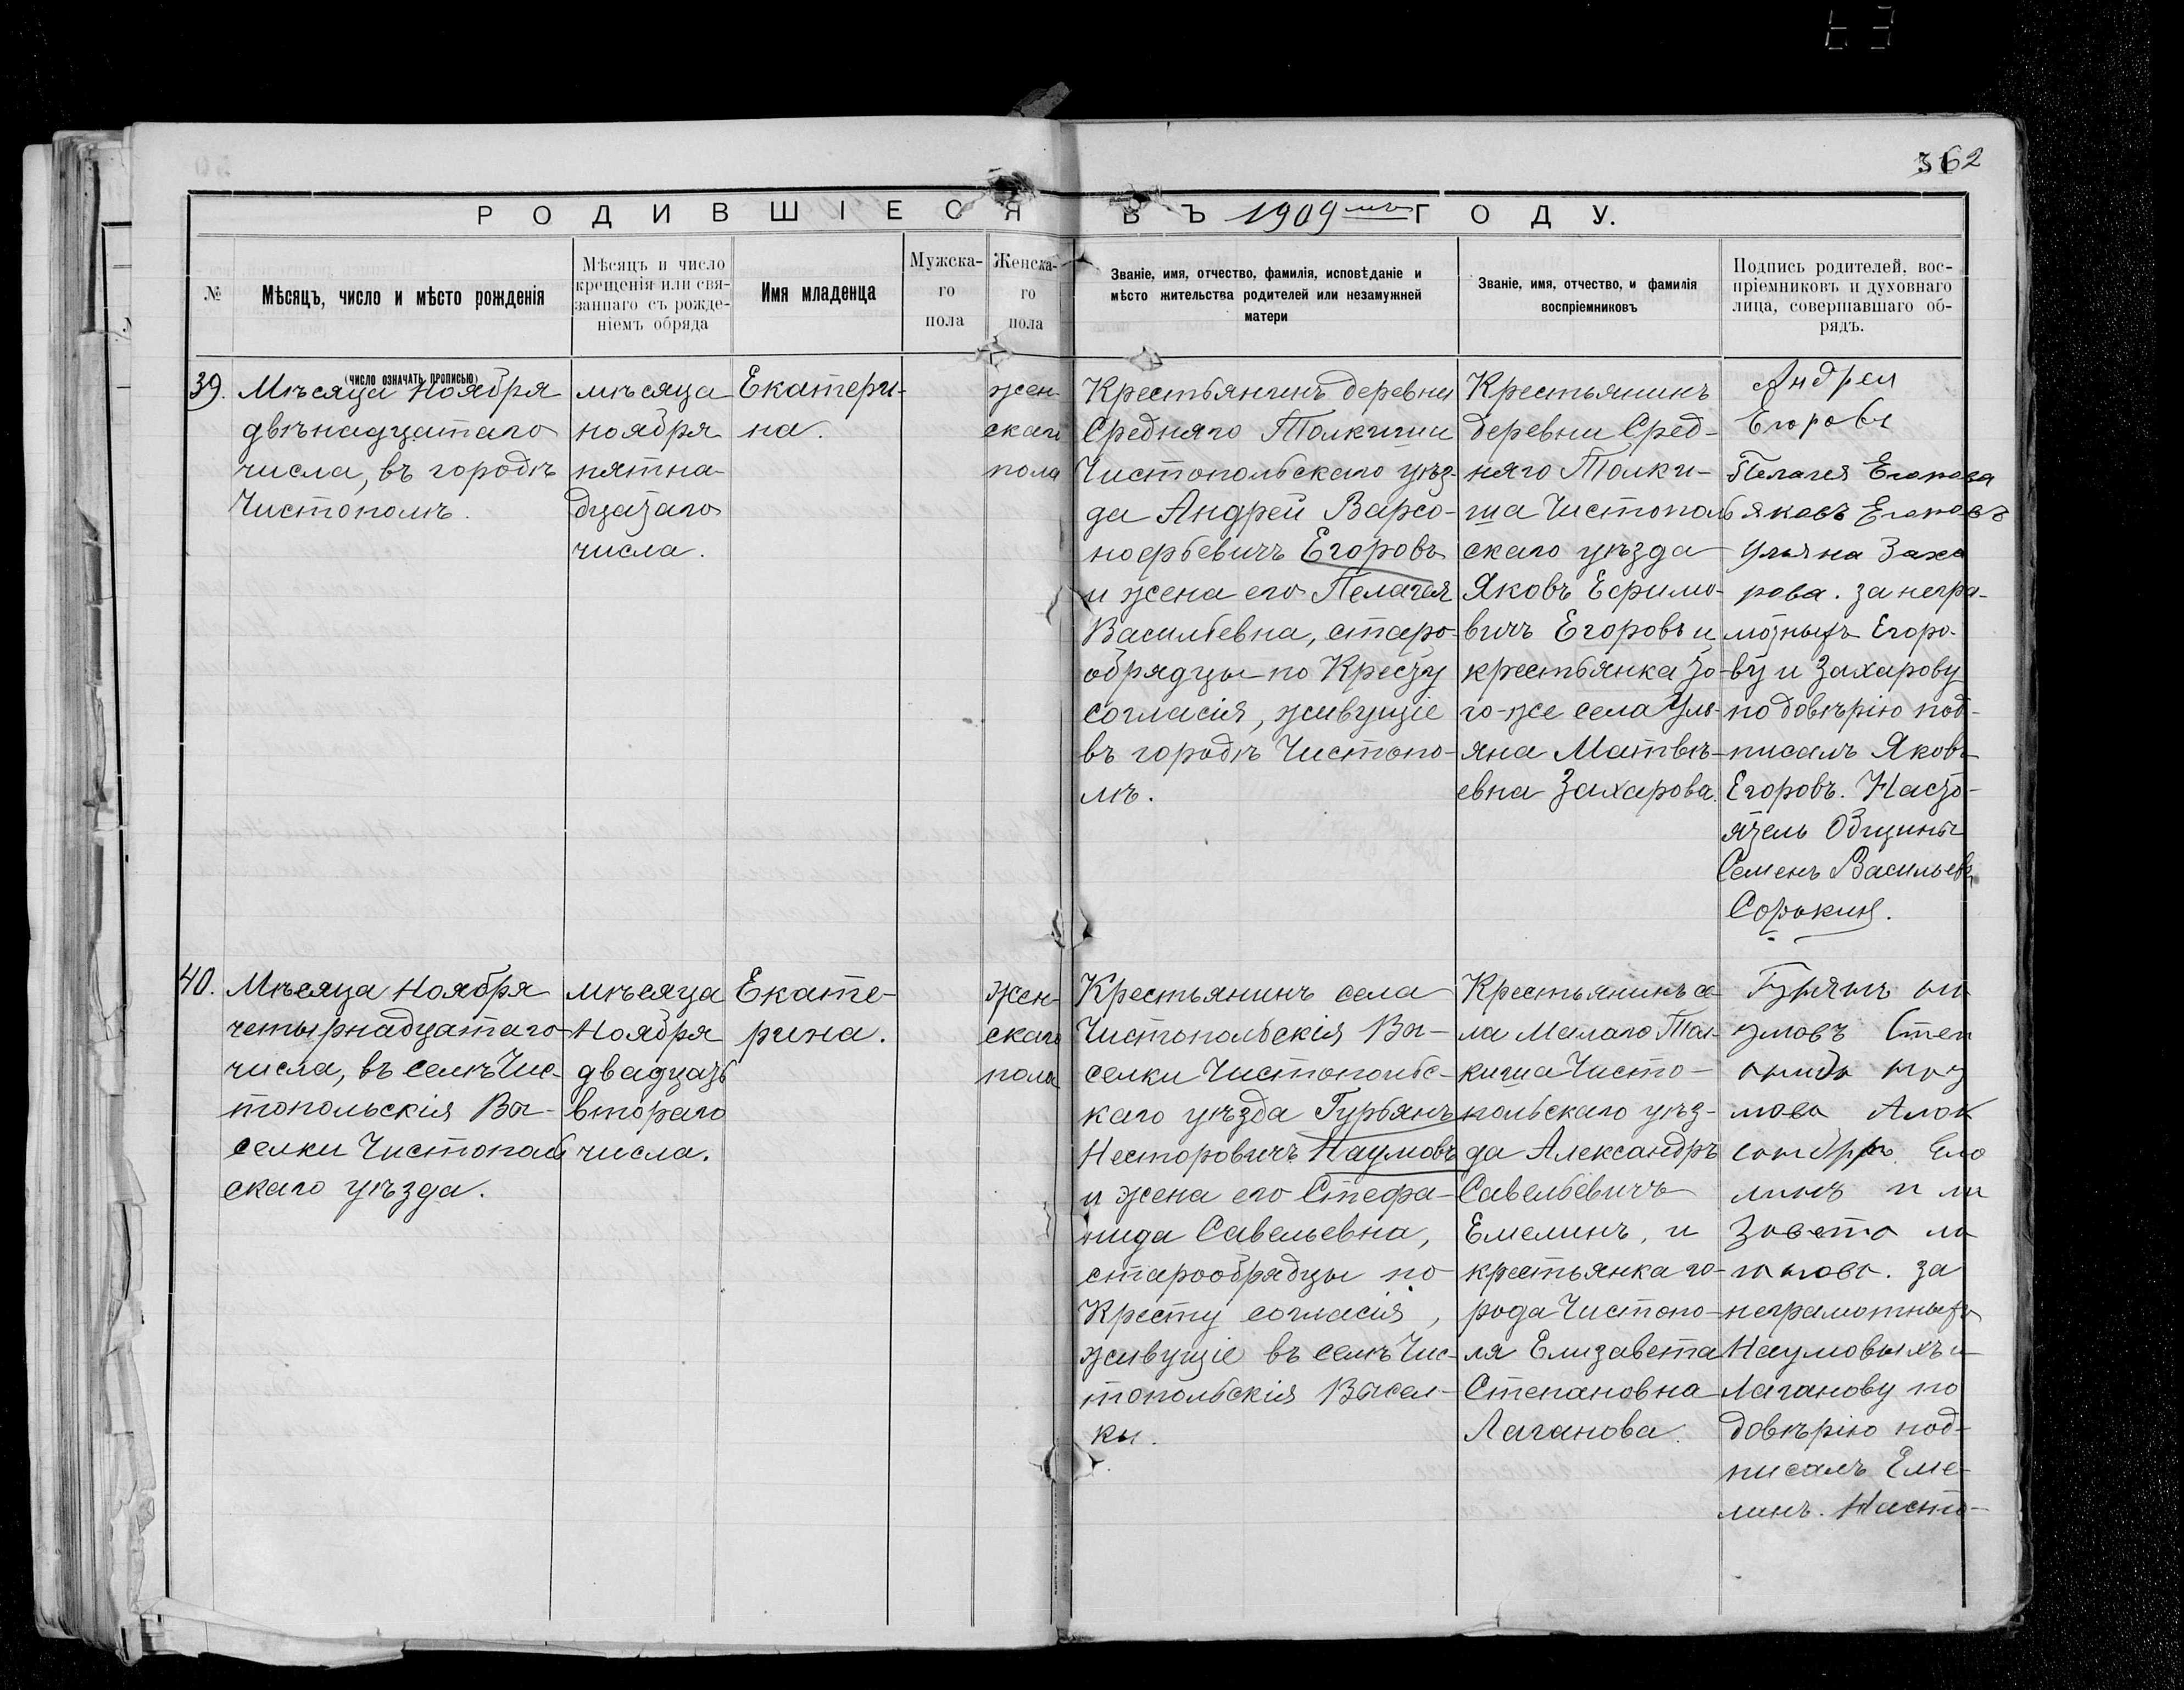 362
РОДИВШІЕСЯ ВЪ 1909мъ ГОДУ.
№
Мѣсяцъ, число и мѣсто рожденія
(число означать прописью)
Мѣсяцъ и число
крещенія или свя-
заннаго съ рожде-
ніемъ обряда
Имя младенца
Мужска-
го
пола
Женска-
го
пола
Званіе, имя, отчество, фамилія, исповѣданіе и
мѣсто жительства родителей или незамужней
матери
Званіе, имя, отчество, и фамилія
воспріемниковъ
Подпись родителей, вос-
пріемниковъ и духовнаго
лица, совершавшаго об-
рядъ.
39.
Мѣсяца Ноября
двѣнадцатаго
числа, въ городѣ
Чистополѣ.
мѣсяца
ноября
пятна-
дцатаго
числа.
Екатери-
на.
жен-
скаго
пола
Крестьянинъ деревни
Средняго Толкиши
Чистопольскаго уѣз-
да Андрей Варсо-
нофьевичъ Егоровъ
и жена его Пелагея
Васильевна, старо-
обрядцы по Кресту
согласія, живущіе
въ городѣ Чистопо-
лѣ.
Крестьянинъ
деревни Сред-
няго Толки-
ша Чистополь
скаго уѣзда
Яковъ Ефимо-
вичъ Егоровъ и
крестьянка то-
го-же села Уль-
яна Матвѣ-
евна Захарова.
Андреи
Егоровъ
Пелагея Егорова
Яковъ Егоровъ
Ульяна Заха
рова. за негра-
мотныхъ Егоро-
ву и Захарову
по довѣрію под-
писалъ Яковъ
Егоровъ. Насто-
ятель Общины
Семенъ Васильевъ
Сорокинъ.
40.
Мѣсяца Ноября
четырнадцатаго
числа, въ селѣ Чис-
топольскія Вы-
селки Чистополь
скаго уѣзда.
мѣсяца
Ноября
двадцать
второго
числа.
Екате-
рина.
жен-
скаго
пола
Крестьянинъ села
Чистопольскія Вы-
селки Чистопольс-
каго уѣзда Гурьянъ
Несторовичъ Наумовъ
и жена его Стефа-
нида Савельевна,
старообрядцы по
Кресту согласія,
живущіе въ селѣ Чис-
топольскія Высел-
ки.
Крестьянинъ се-
ла Малаго Тол-
киша Чисто-
польскаго уѣз-
да Александръ
Савельевичъ
Емелинъ, и
крестьянка го-
рода Чистопо-
ля Елизавета
Степановна
Лаганова.
Гурянъ
умовъ Степ
мова Алек
Еме
линъ и ли
завета ла
за
неграмотныхъ
Наумовыхъ и
Лаганову по
довѣрію под-
писалъ Еме-
линъ. Насто-